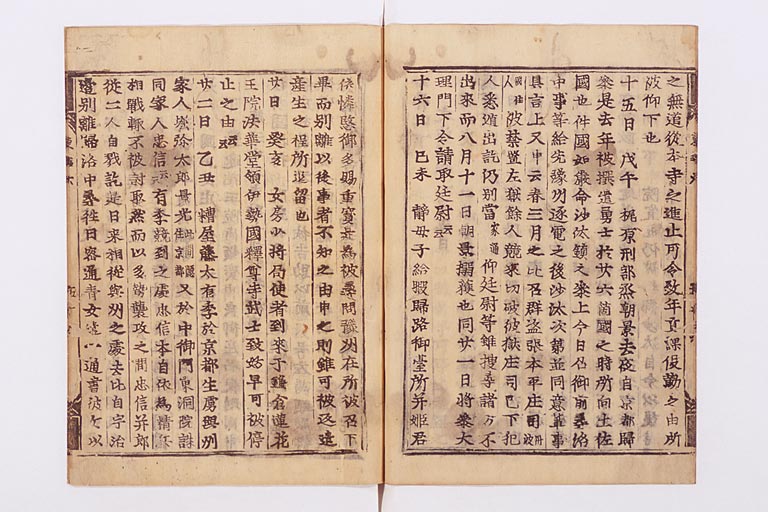 之無道從本寺之進止可令致年貢課役勤之由所
被仰下也
十五日 戊午 梶原刑部丞朝景去夜自京都歸
參是去年被撰遣勇士於廿六箇國之時所向土佐
國也件國如嚴命沙汰鎮之參上今日召御前尋洛
中事等給先緣州逐電之後沙汰次第並同意輩事
具言上又申云春三月之比召群盜張本平庄司
人 被禁置左獄餘人競來切破彼獄庄司已下犯
人悉逃出訖仍別當家通仰廷尉等雖搜尋諸方不
出來而八月十一日朝景搦獲也同廿一日將參大
理門下令請取廷尉云云
十六日 己未 靜母子給暇歸洛御臺所并姬君
依憐愍御多賜重寶是為被尋問豫州在所被召下
畢而別離以後事者不知之由申之則雖可被返遣
產生之程所逗留也
廿日 癸亥 女房少將局使者到來于鎌倉蓮花
王院法華堂領伊勢國釋尊寺武士致妨早可被停
止之由云云
廿二日 乙丑 糟屋藤太有季於京都生虜與州
家人堀弥太郎景光此間隱住京都又於中御門東洞院誅
同家人忠信云云有季競到之處忠信本自依為精兵
相戰輙不被討取然而以多勢襲攻之間忠信并郎
從二人自戮訖是日來相從與州之處去比自宇治
邊別離歸洛中尋往日容通青女遣以通書彼女以